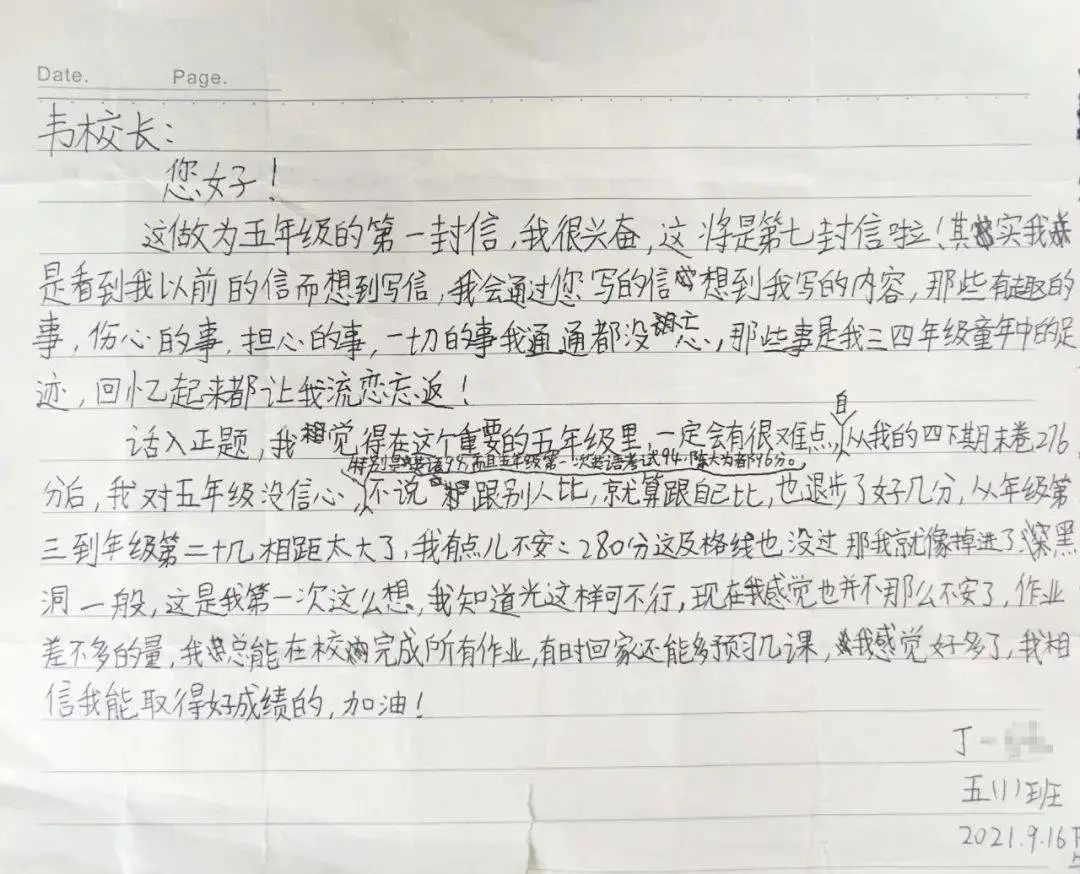 Date.  Page.
韦校长：
您好！
这做为五年级的第一封信，我很兴奋，这将是第七封信啦！其实我
是看到我以前的信而想到写信，我会通过您写的信想到我写的内容，那些有趣的
事，伤心的事，担心的事，一切的事我通通都没忘，那些事是我三四年级童年中的足
迹，回忆起来都让我流恋忘返！
自
话入正题，我觉得在这个重要的五年级里，一定会有很难点，从我的四下期末卷276
特别是英语 而且五年级第一次英语考试94，陈大为都96分。
分后，我对五年级没信心，不说跟别人比，就算跟自己比，也退步了好几分，从年级第
三到年级第二十几相距太大了，我有点儿不安：280分这及格线也没过那我就像掉进了深黑
洞一般，这是我第一次这么想，我知道光这样可不行，现在我感觉也并不那么不安了，作业
差不多的量，我总能在校内完成所有作业，有时回家还能多预习几课，我感觉好多了，我相
信我能取得好成绩的，加油！
丁一
五(1)班
2021.9.16